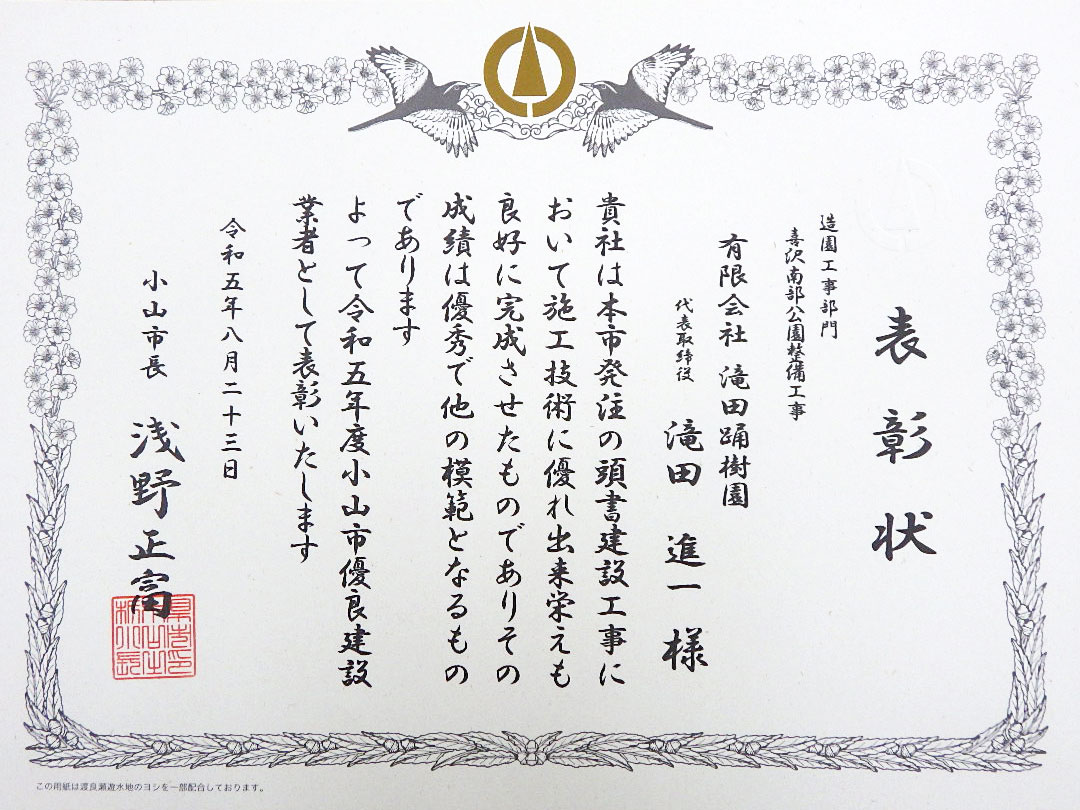 表彰状
造園工事部門
喜沢南部公園整備工事
有限会社 滝田踊樹園
代表取締役 滝田 進一 様
貴社は本市発注の頭書建設工事に
おいて施工技術に優れ出来栄えも
良好に完成させたものでありその
成績は優秀で他の模範となるもの
であります
よって令和五年度小山市優良建設
業者として表彰いたします
令和五年八月二十三日
小山市長 浅野正富
この用紙は渡良瀬遊水地のヨシを一部配合しております。